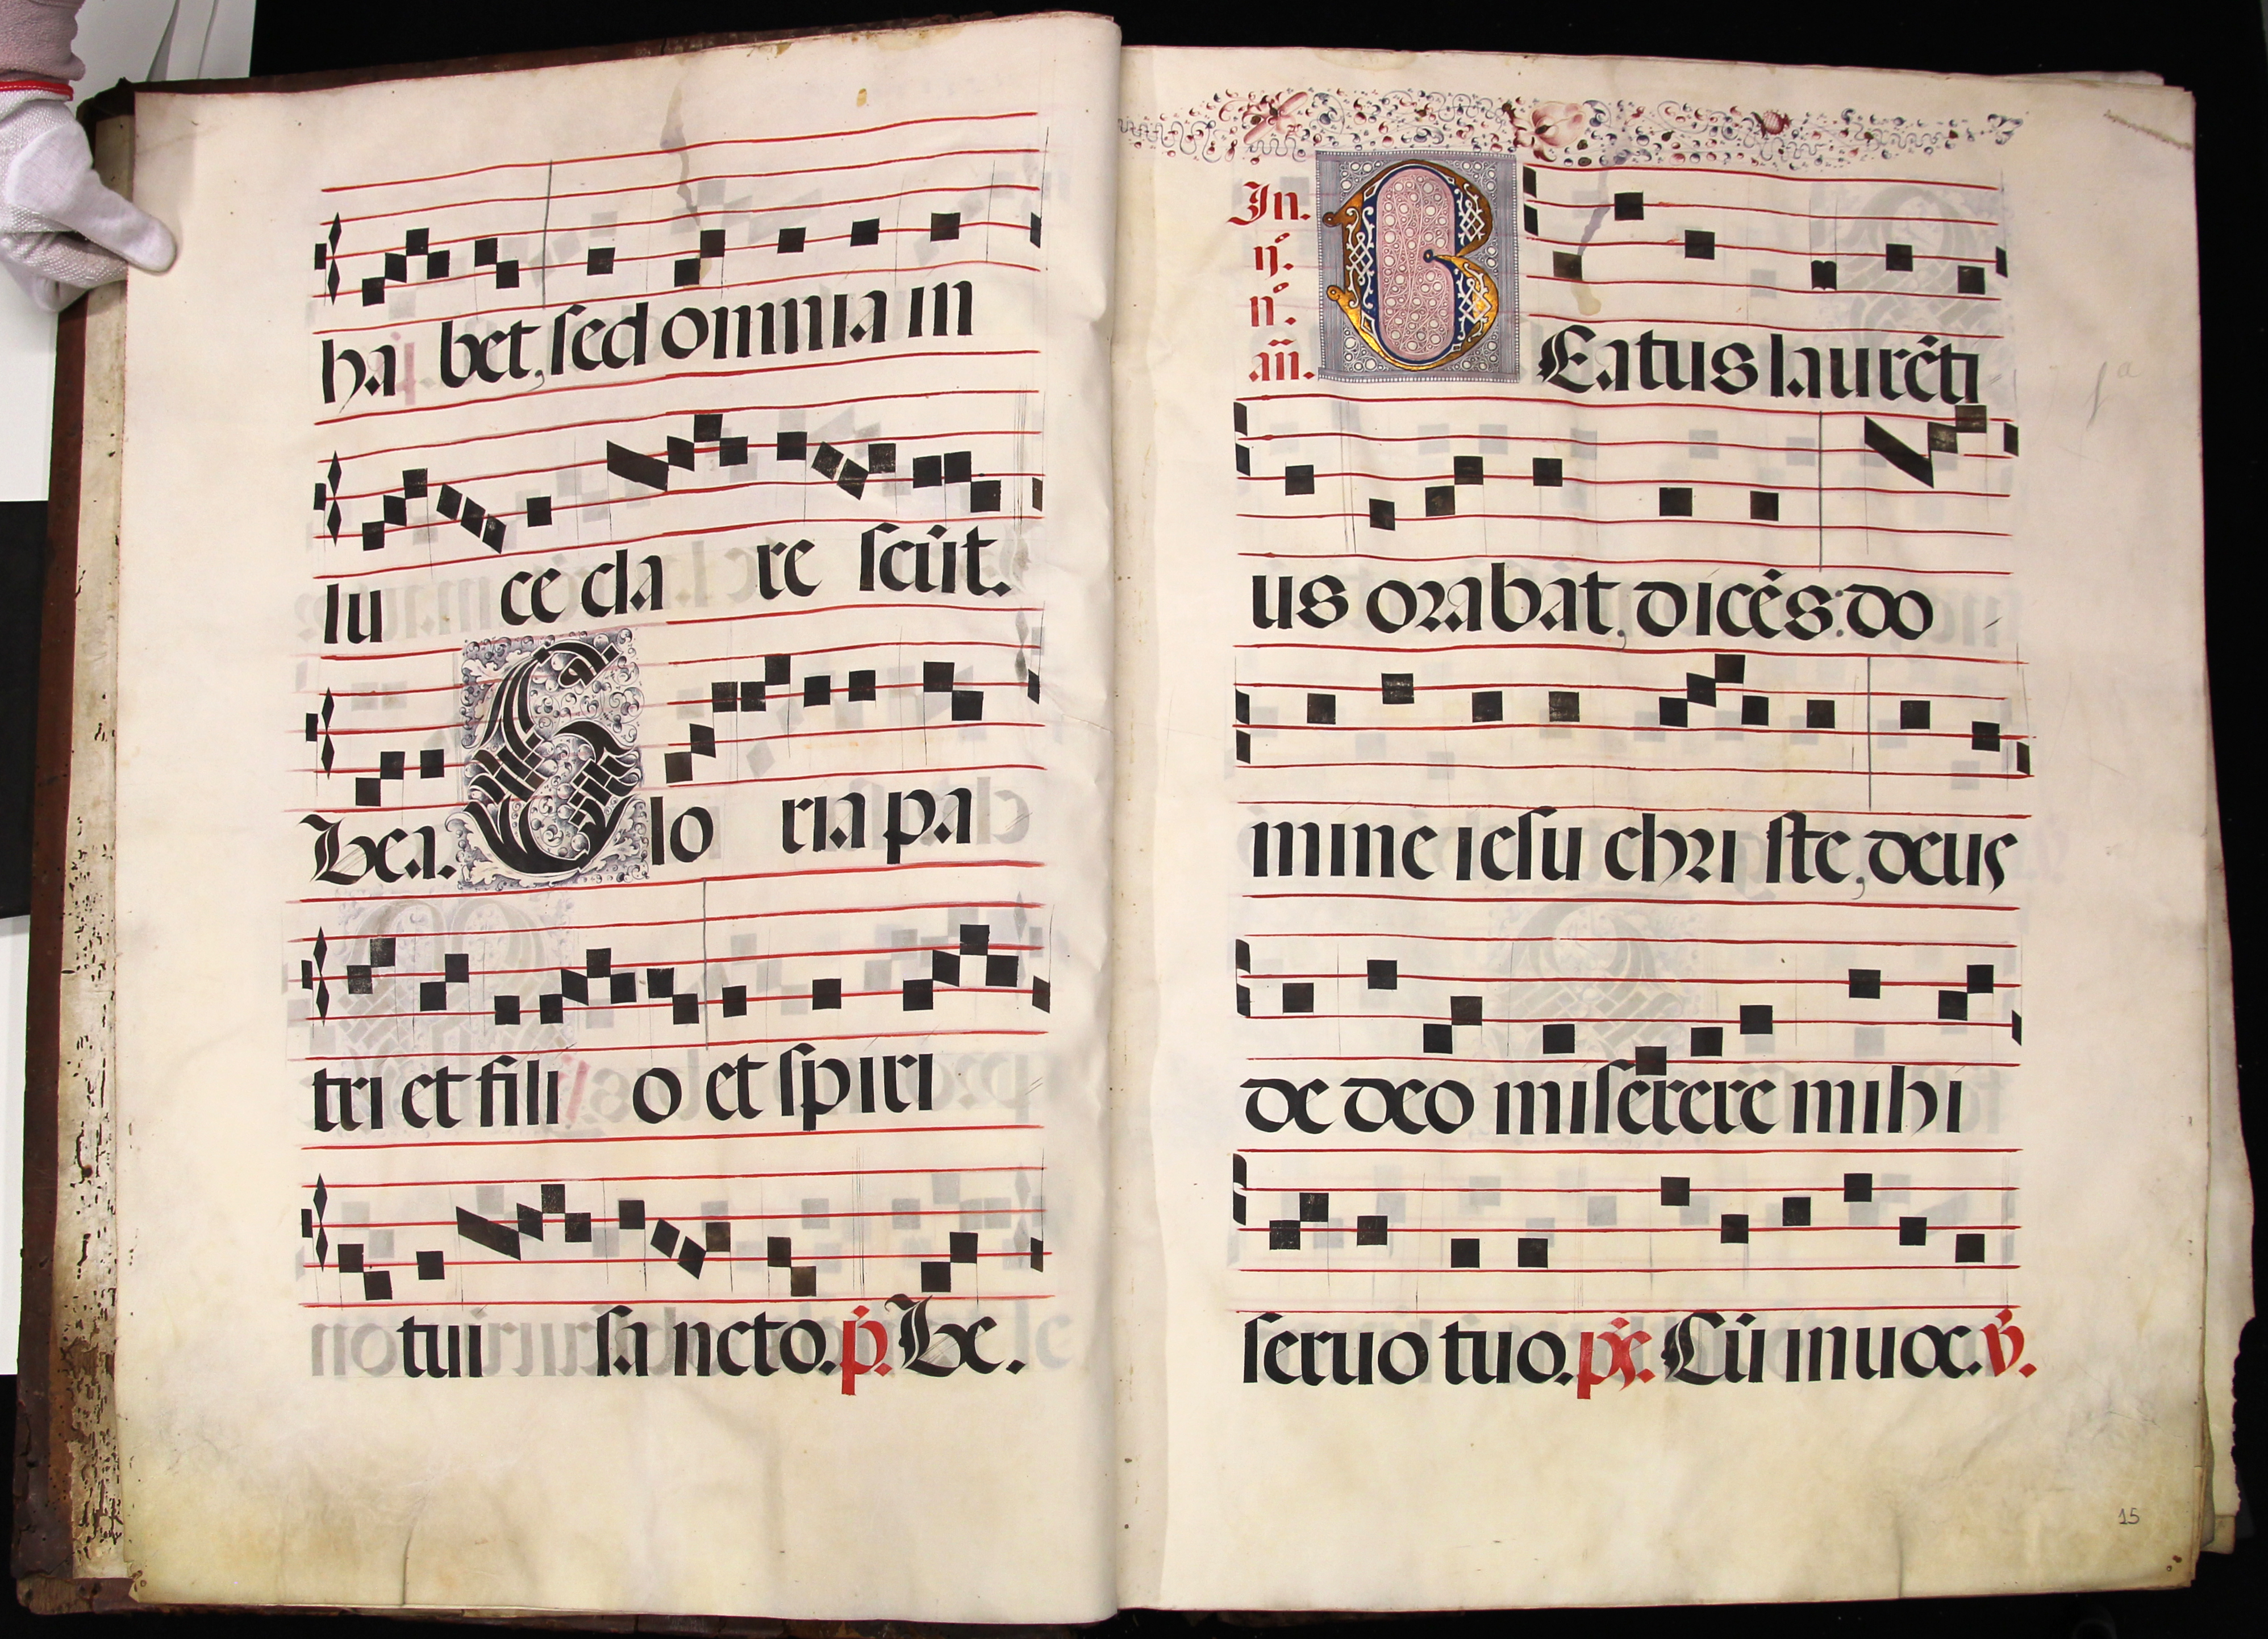 ha bet, sed omnia in
lu ce cla re scūt.
Bea. Glo ria pa
tri et fili o et spiri
tui sa ncto. p̄. Be.
In.
ij.
n̊.
añ.
BEatus laurēti
us orabat, dicēs: do
mine iesu chri ste, deus
de deo miserere mihi
seruo tuo. ps̄. Cū inuoc. v̄.
15